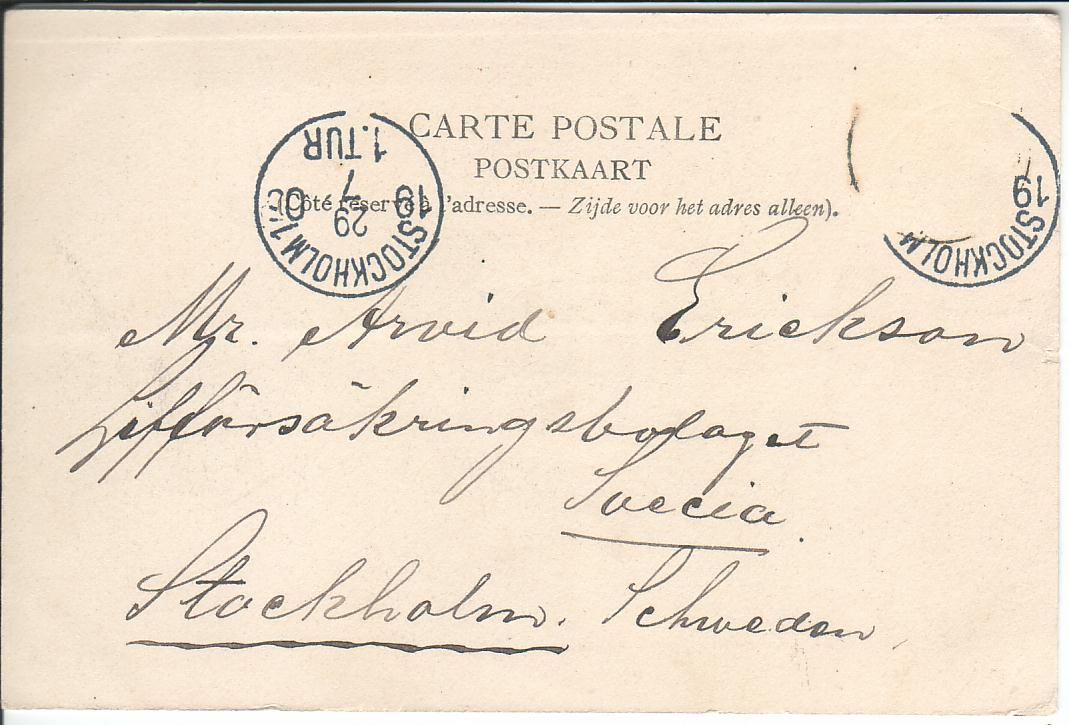 CARTE POSTALE
POSTKAART
(Côté réservé à l'adresse. — Zijde voor het adres alleen).
STOCKHOLM 1.
1. TUR
29
7
19
STOCKHOLM
19
Mr. Arvid Erickson
Lifförsäkringsbolaget
Svecia
Stockholm. Schweden